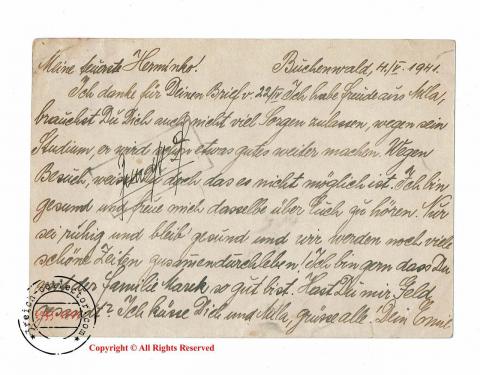 Meine teuerste Herminko! Buchenwald, 4./V. 1941.
Ich danke für Deinen Brief v. 22/IV Ich habe freude aus Mila,
brauchst Du Dich auch nicht viel Sorgen zulassen, wegen sein
Studium, er wird schon etwas gutes weiter machen. Wegen
Besuch, weisst doch das es nicht möglich ist. Ich bin
gesund und freue mich dasselbe über Euch zu hören. Nur
sei ruhig und bleib gesund und wir werden noch viele
schöne Zeiten zusammendurchleben! Ich bin gern dass Du
der Familie Marek so gut bist. Hast Du mir Geld
gesandt? Ich küsse Dich und Mila, grüsse alle. Dein Emil
Copyright © All Rights Reserved